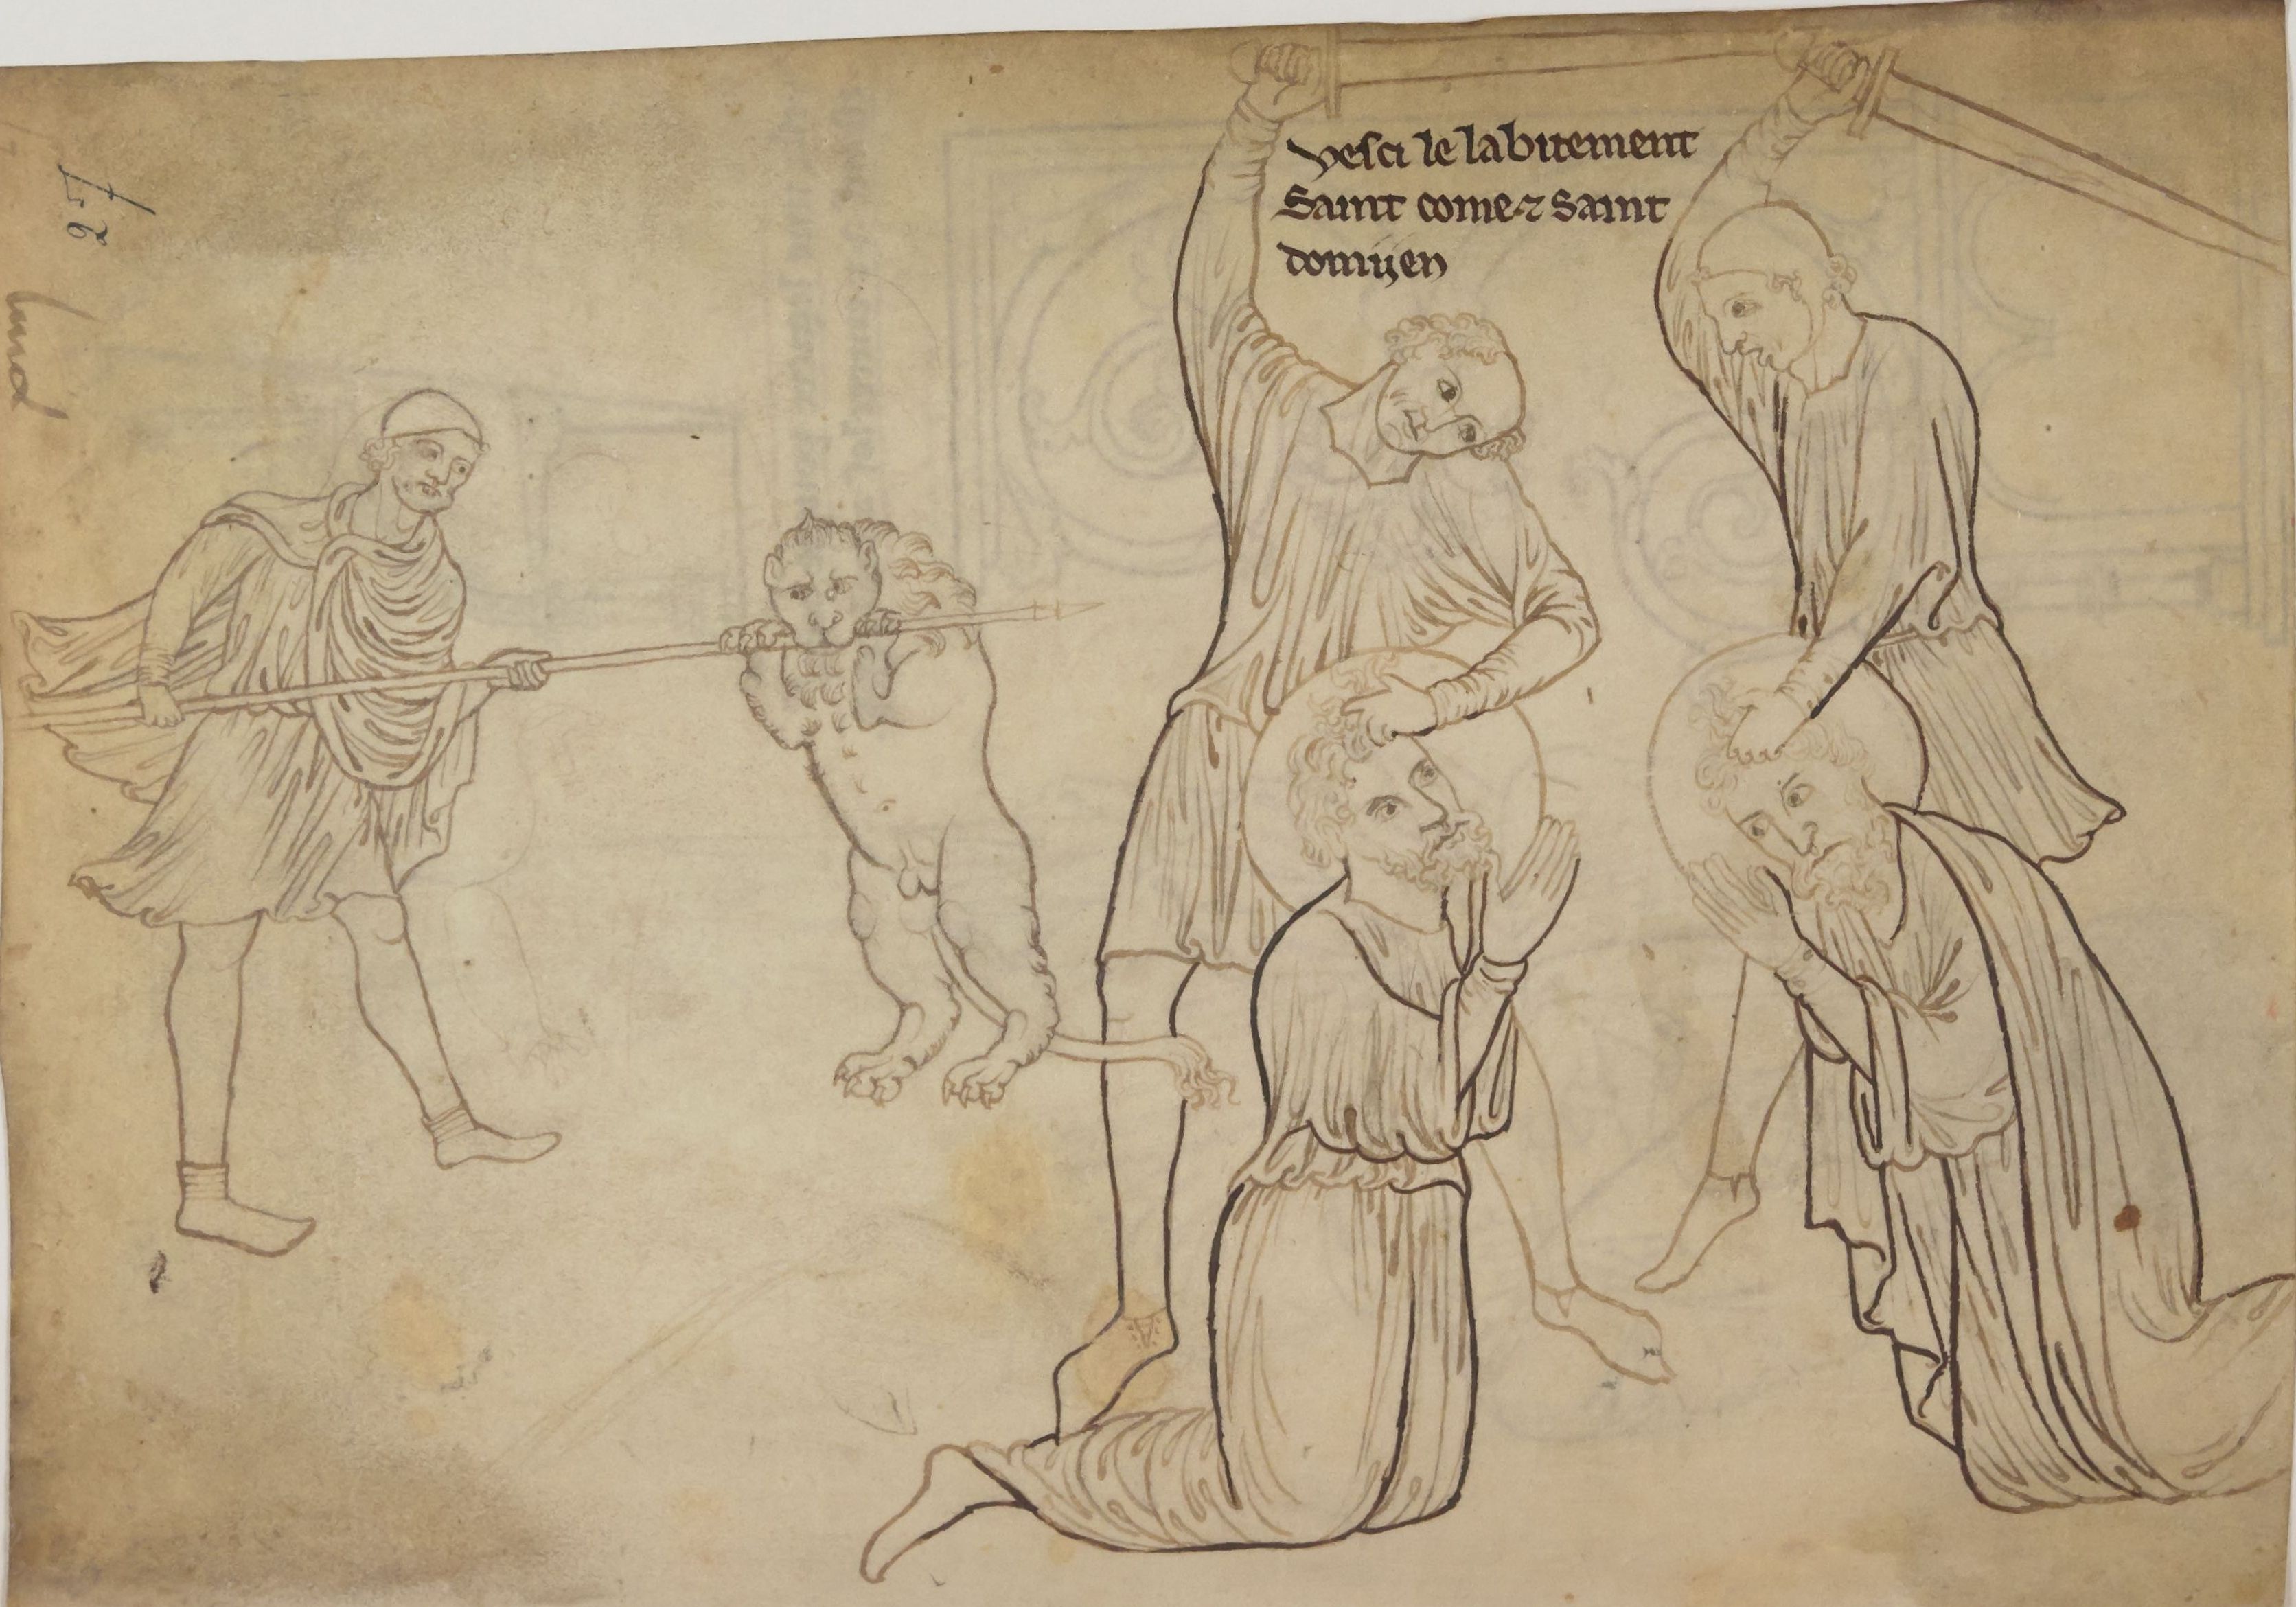 vesci le labitement
Saint come ⁊ Saint
domijen
27